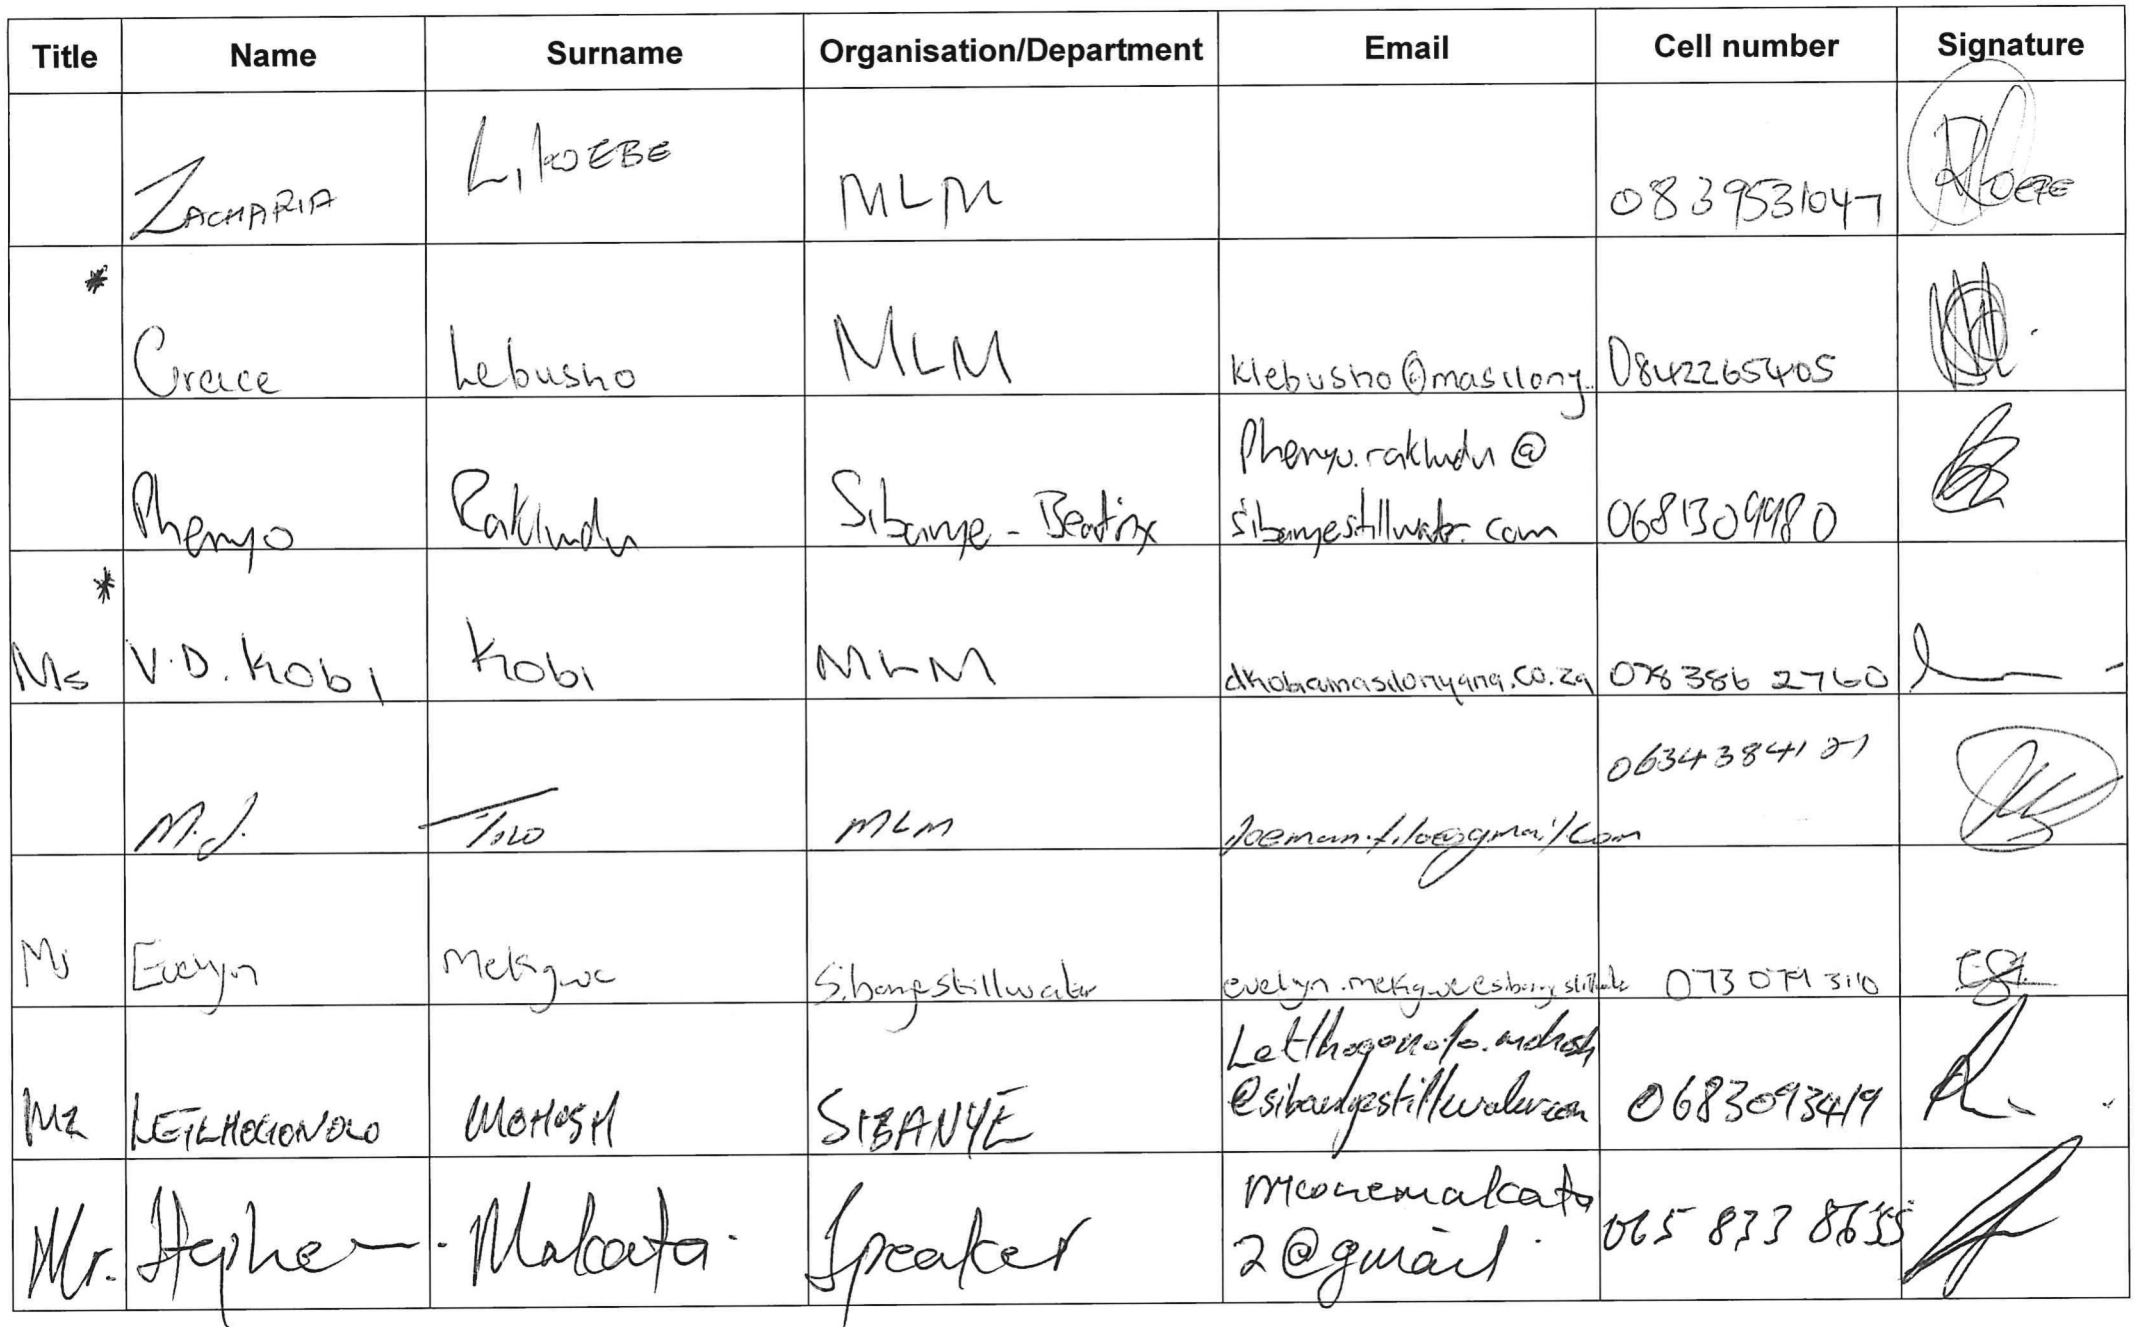 Title Name Surname Organisation/Department Email Cell number Signature
ZACHARIA LIKOEBE MLM 0839531047
* Grace Lebusho MLM klebusho@masilony. 0842265405
Phenyo Rakludu Sibanye - Beatrix Phenyo.rakludu@
sibanyestillwater.com 0681309980
* Ms V.D. Kobi Kobi MLM dkobi@masilonyana.co.za 078 386 2760
M.J. TILO MLM Joeman.tilo@gmail.com 0634384121
Ms Evelyn Mekgwe Sibanyestillwater evelyn.mekgwe@sibanyestillwate 073 079 3110
Mr LETLHOGONOLO MOHOSH SIBANYE Letlhogonolo.mohosh
@sibanyestillwater.com 0683093419
Mr. Stephen Makata Speaker
2@gmail 065 833 8655